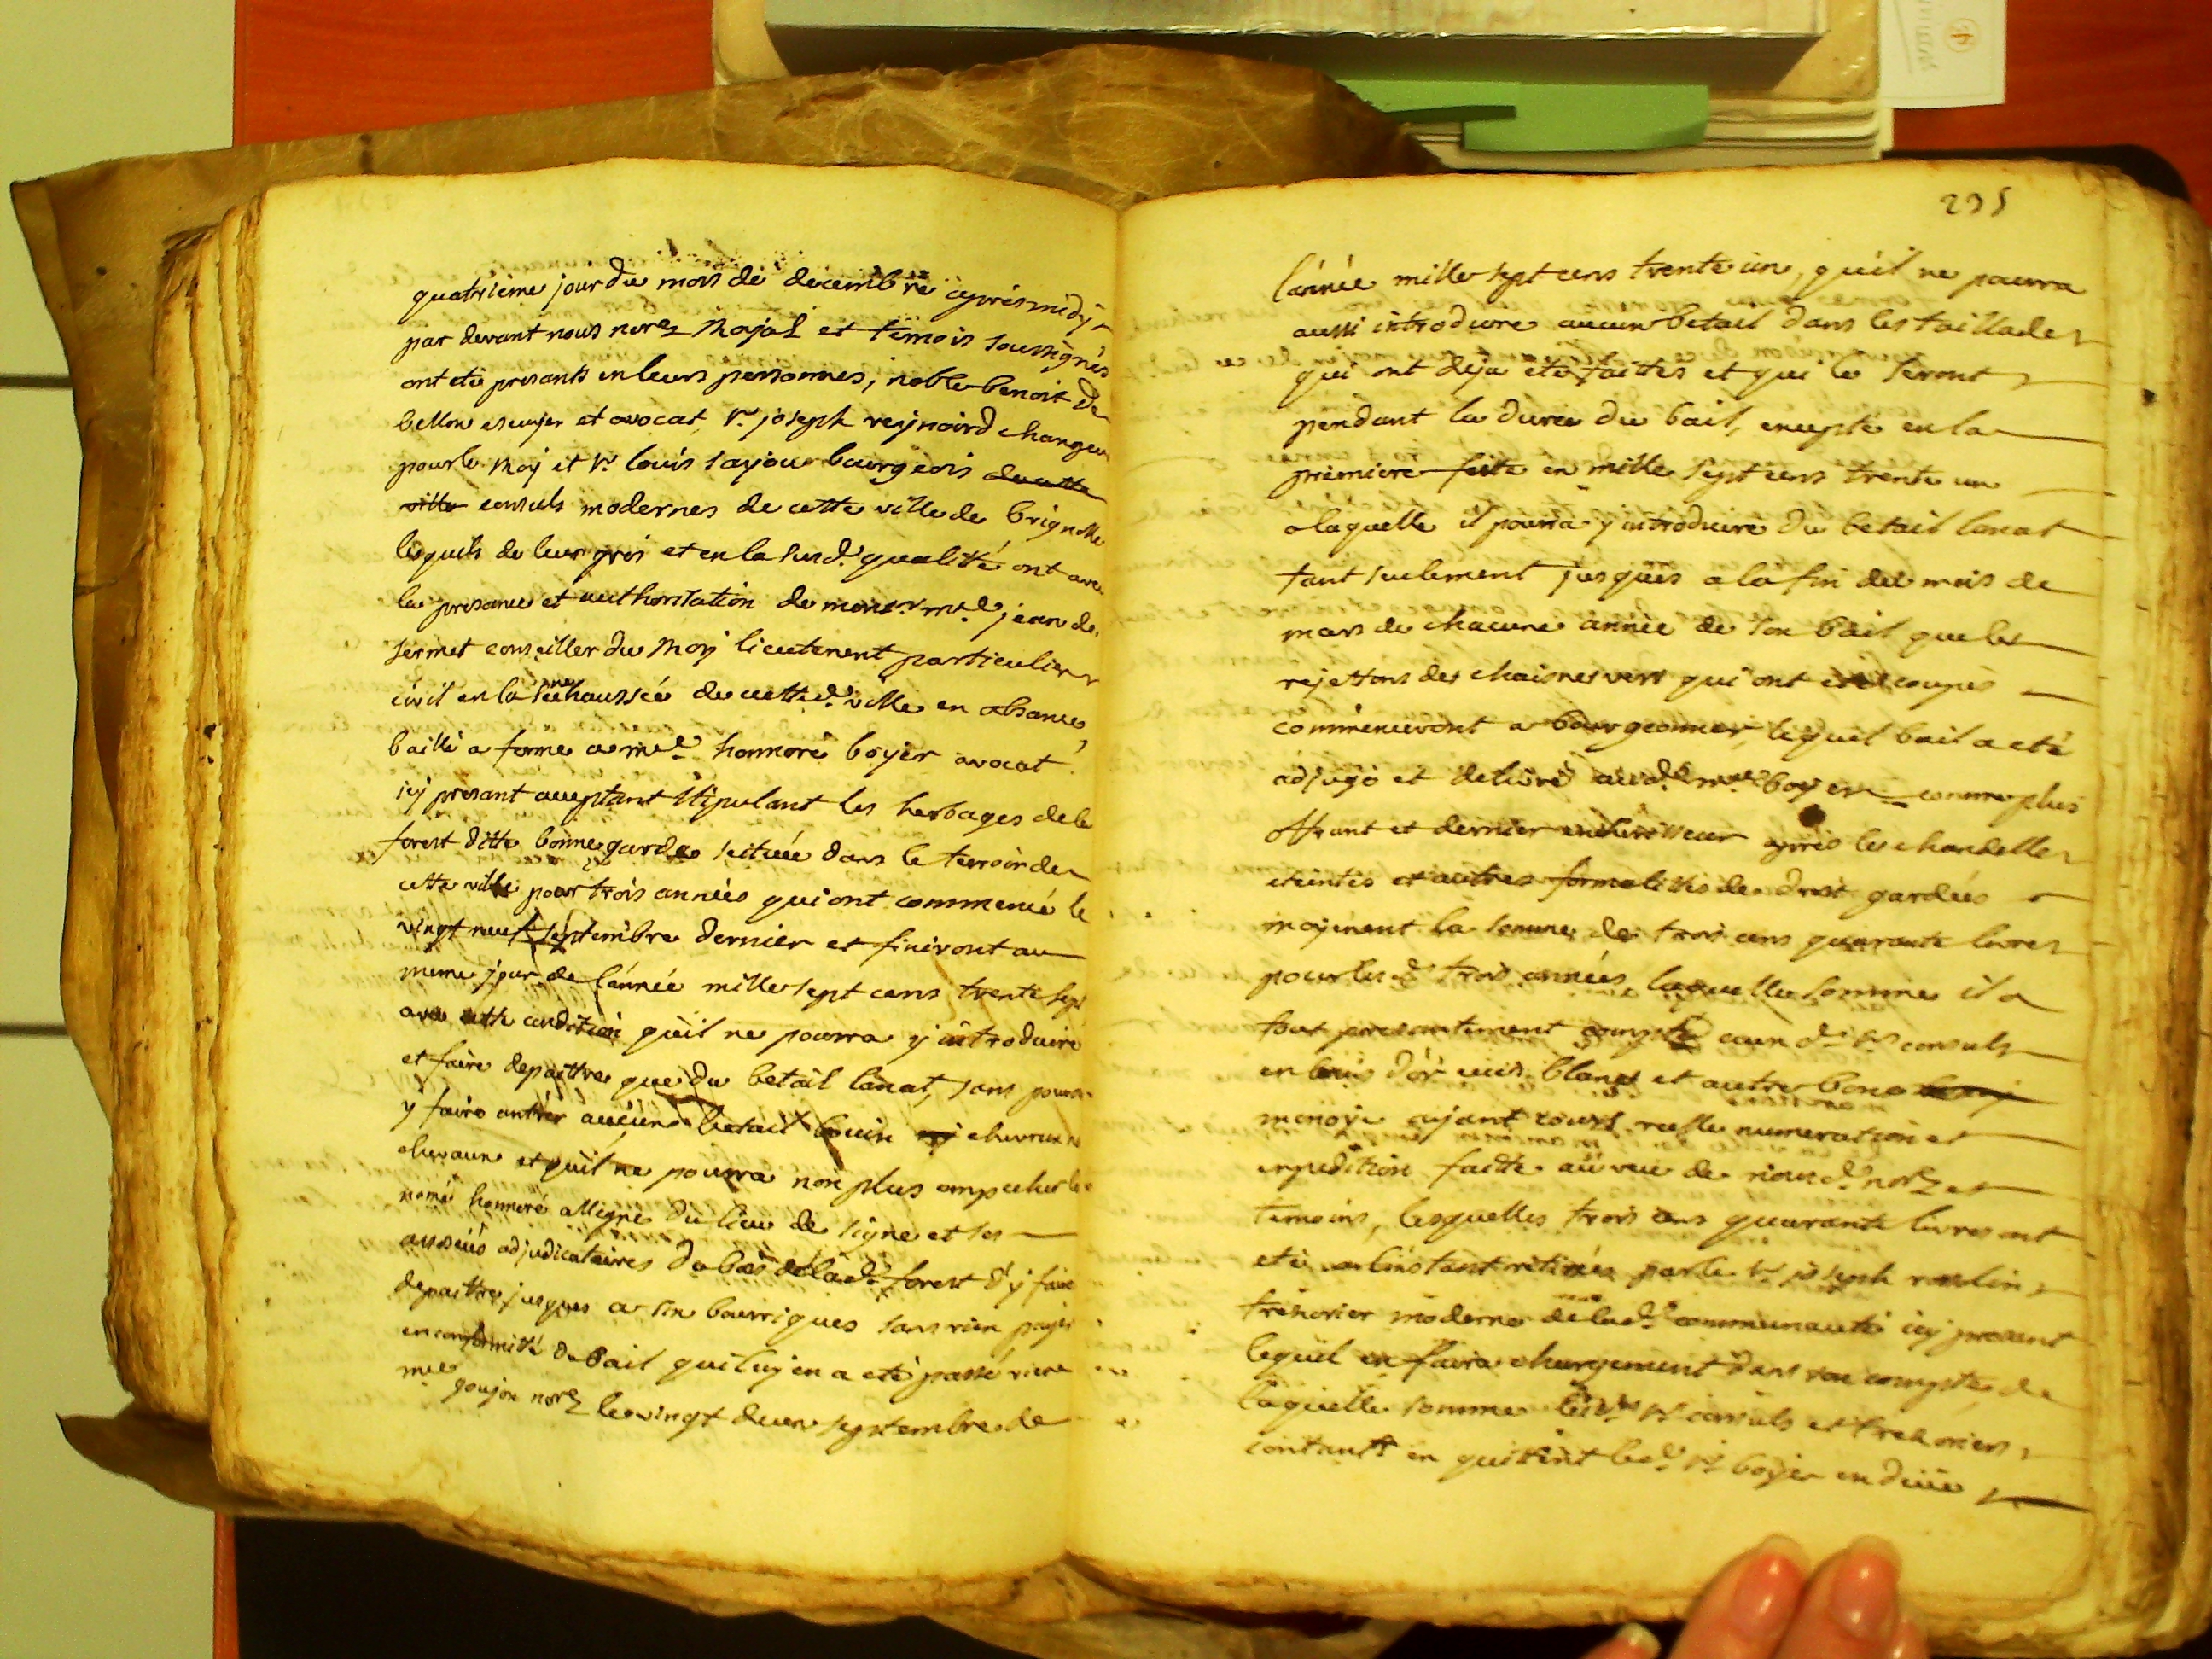 quatrieme jour du mois de decembre apres midy
par devant nous nore Royal et temois soussignés
ont eté presants en leurs personnes, noble benoit de
bellon escuyer et avocat sr joseph reynoird changeur
pour le Roy et sr louis sayou bourgeois de cette
ville consuls modernes de cette ville de brignolle
lesquels de leur gres et en la susde qualitté ont avec
la presance et authorisation de monsr me jean de
sermet conseiller du Roy lieutenent particulier
civil en la senechaussée de cette de ville en absance
baillé a ferme a me honnoré boyer avocat
icy presant acceptant stipulant les herbages de la
forest ditte bonnegarde scituée dans le terroir de
cette ville pour trois années qui ont commencé le
vingt neuf septembre dernier et finiront au
meme jour de l'année mille sept cens trente sept
avec cette condition qu'il ne pourra y introduire
et faire depaittre que du betail lanat, sans pouvoir
y faire antrer aucune betail bouin ny chevrun
chevaun et qu'il ne pourra non plus ampecher le
nomé honnoré allegre du lieu de signe et ses
associés adjudicataires du bois de lade forest d'y faire
depaittre jusques a six bourriques sans rien payer
en conformitté du bail qui luy en a eté passé riere
me goujon nore le vingt deux septembre de
235
l'année mille sept cens trente un, qu'il ne pourra
aussi introduire aucun betail dans les taillades
qui ont deja eté faittes et qui se feront
pendant la durée du bail, excepté en la
premiere faite en mille sept cens trente un
a laquelle il pourra y introduire du betail lanat
tant seulement jusques a la fin du mois de
mars de chacune année de son bail que les
rejettons des chaines vers qui ont eté coupés
commenceront a bourgeonner, lequel bail a eté
adjugé et delivré aud. me boyer comme plus
offrant et dernier encherisseur apres les chandelles
eteintes et autres formalittés de droit gardées
moyenent la somme de trois cens quarante livres
pour lesd trois années, laquelle somme il a
tout presentement compté auxd srs consuls
en louis d'or ecus blancs et autre bone
monoye ayant cours reelle numeration et
expedition faitte au veu de nousd nore et
temoins, lesquelles trois cens quarante livres ont
eté a l'instant retirées par le sr joseph roslin
tresorier moderne de lade communauté icy presant
lequel en faira chargement dans son compte, de
laquelle somme lesds srs consuls et tresorier
contants en quittent led sr boyer en deüe